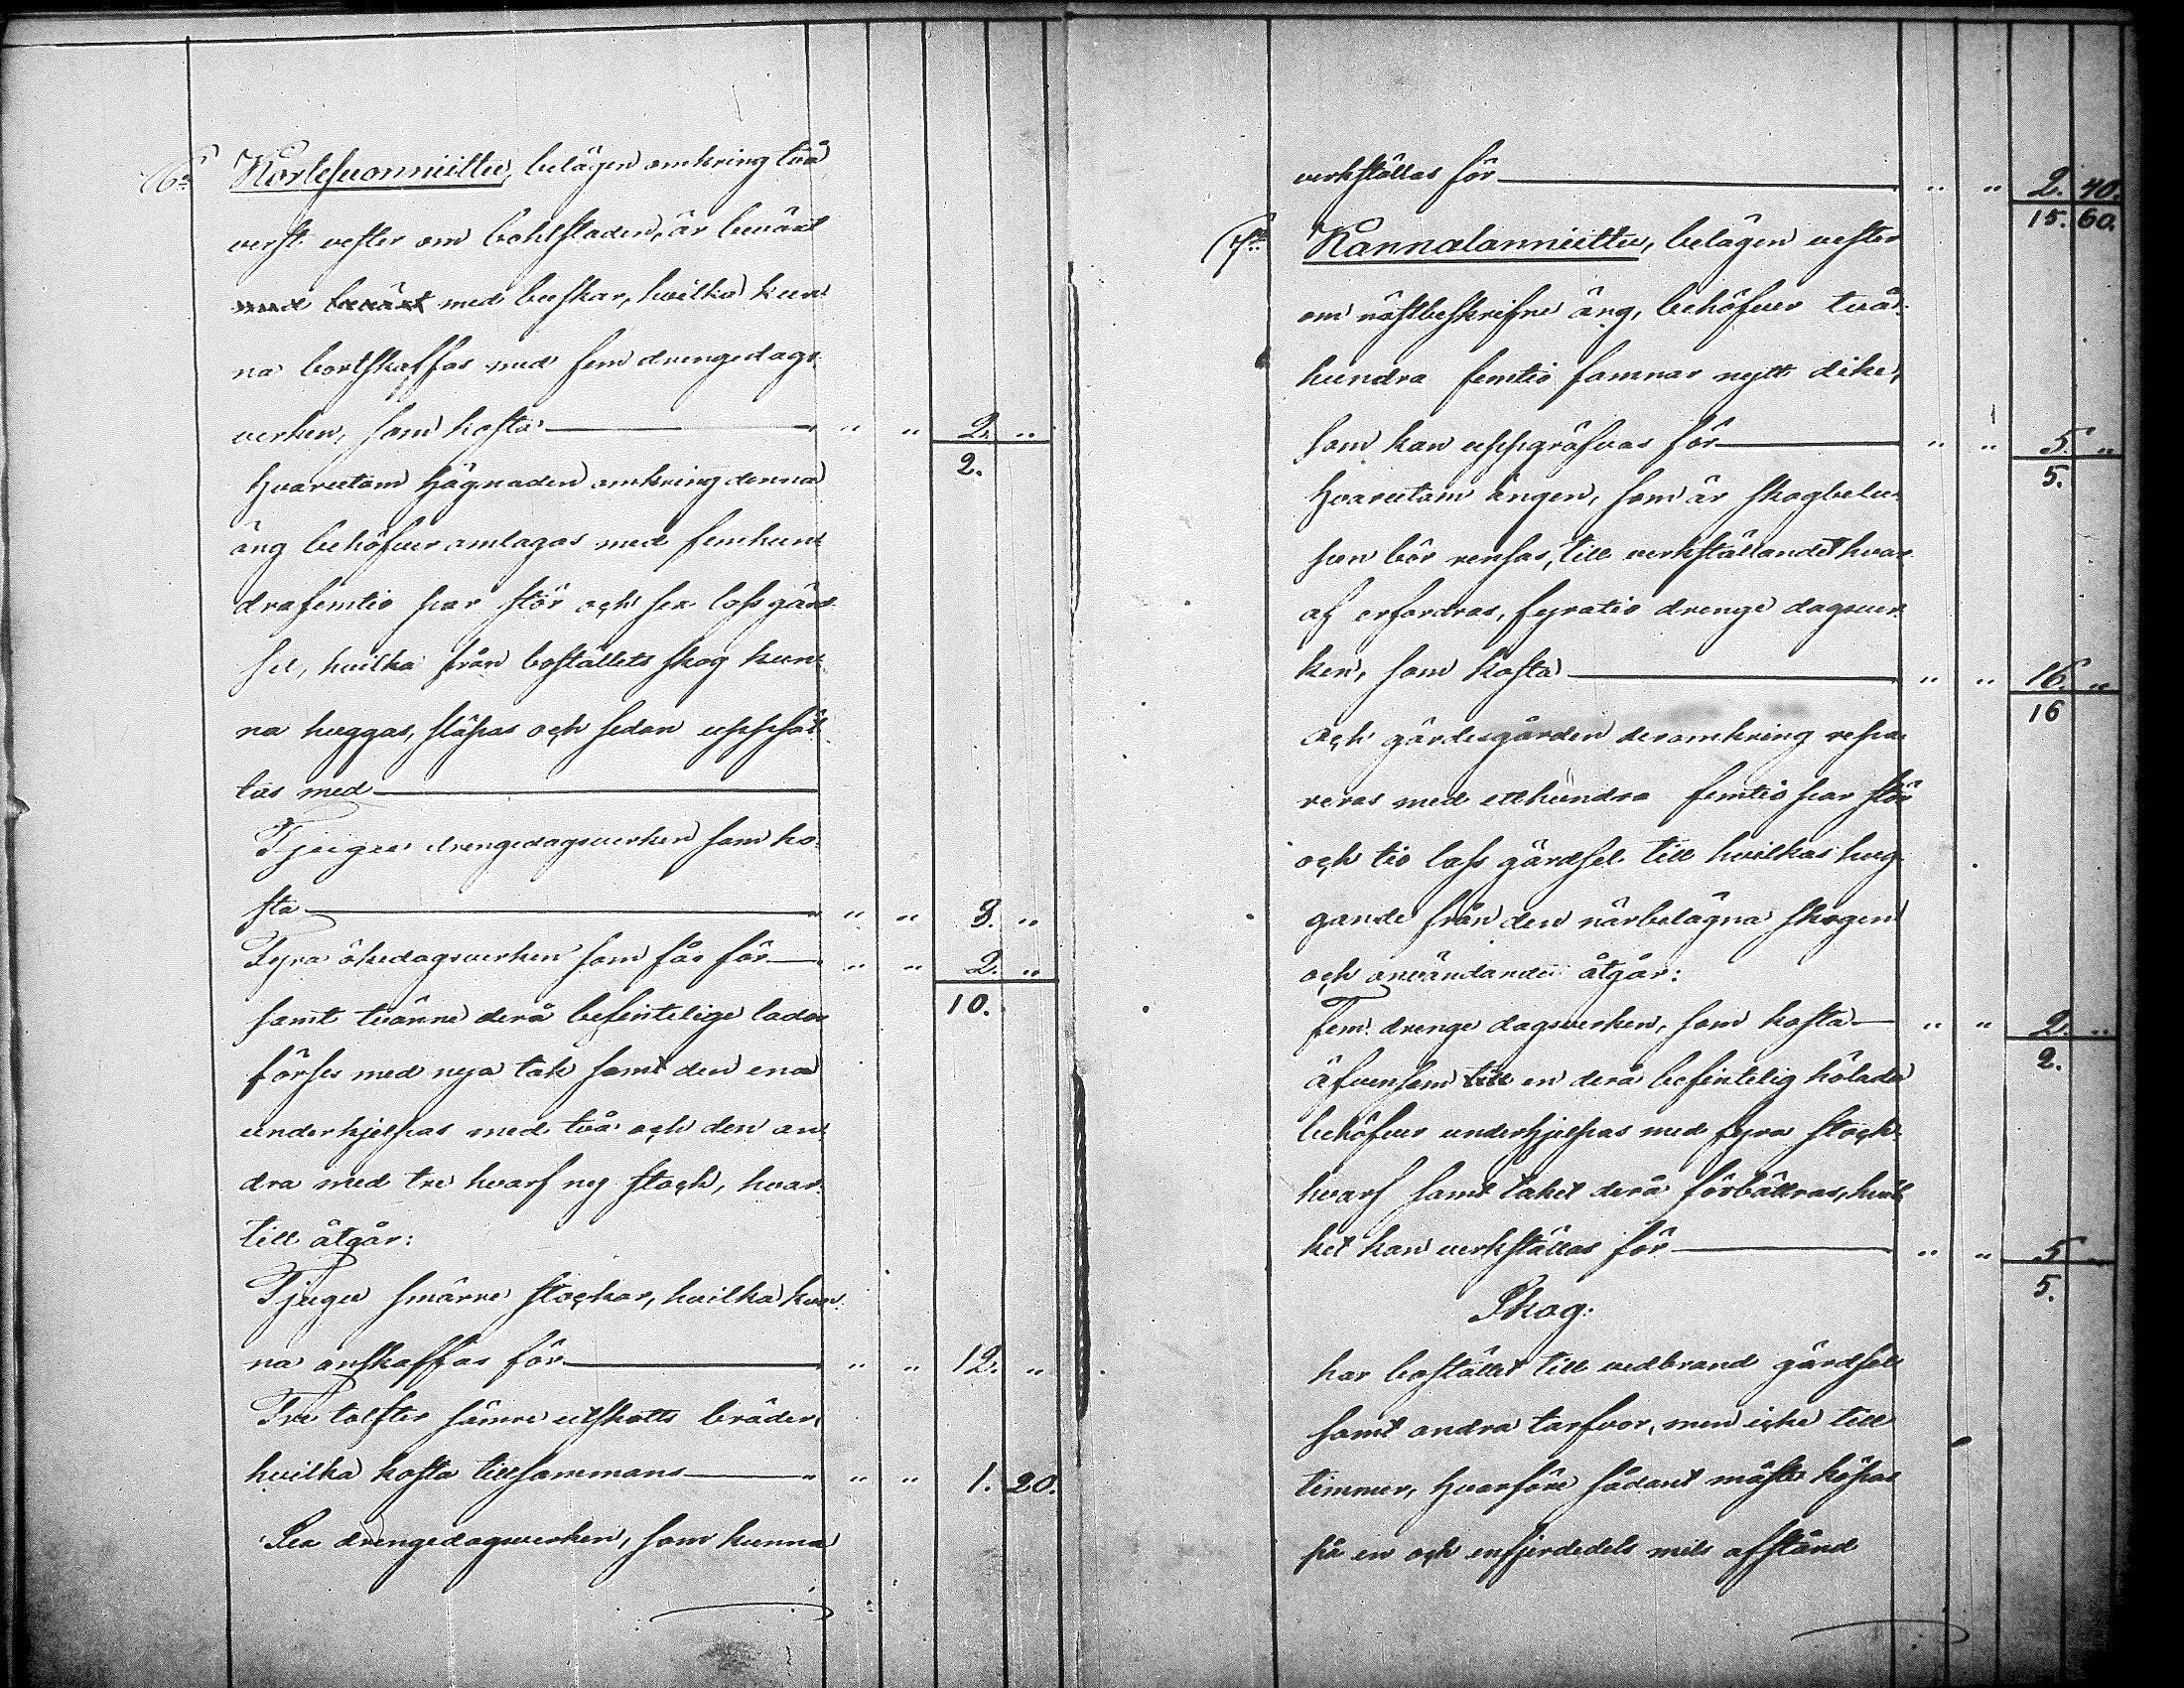 6=o Kortesuonniittu, belägen omkring två
verst vester om bohlstaden, är beväxt
med beväxt med buskar, hvilka kun-
na bortskaffas med fem drengedags-
verken, som kosta " " 2. "
2.
Hvarutom hägnaden omkring denna
äng behöfver omlagas med femhun-
drafemtio par stör och sex lass gärd-
sel, hvilka från boställets skog kun-
na huggas, släpas och sedan uppsät-
tas med
Tjugu drengedagsverken som ko-
sta " " 8. "
Fyra ökedagsverken som fås för " " 2. "
10.
samt tvänne derå befintelige lador
förses med nya tak samt den ena
underhjelpas med två och den an-
dra med tre hvarf ny stock, hvar-
till åtgår:
Tjugu smärre stockar, hvilka kun-
na anskaffas för " " 12. "
Tre tolfter sämre utskotts bräder,
hvilka kosta tillsammans " " 1. 20.
Sex drengedagsverken, som kunna
verkställas för " " 2. 40.
15. 60.
7=o Kannalanniittu, belägen vester
om nästbeskrifne äng, behöfver två-
hundra femtio famnar nytt dike,
som kan uppgräfvas för " " 5. "
5.
Hvarutom ängen, som är skogbelu-
pen bör rensas, till verkställandet hvar-
af erfordras, fyratio drenge dagsver-
ken, som kosta " " 16. "
16
och gärdesgården deromkring repa-
reras med etthundra femtio par stör
och tio lass gärdsel till hvilkas hug-
gande från den närbelägna skogen
och användande åtgår:
Fem drenge dagsverken, som kosta " " 2. "
2.
äfvensom till en derå befintelig hölada
behöfver underhjelpas med fyra stock-
hvarf samt taket derå förbättras, hvil-
ket kan verkställas för " " 5 "
5.
Skog:
har bostället till vedbrand gärdsel
samt andra tarfvor, men icke till
timmer, hvarföre sådant måste köpas
på en och enfjerdedels mils afstånd